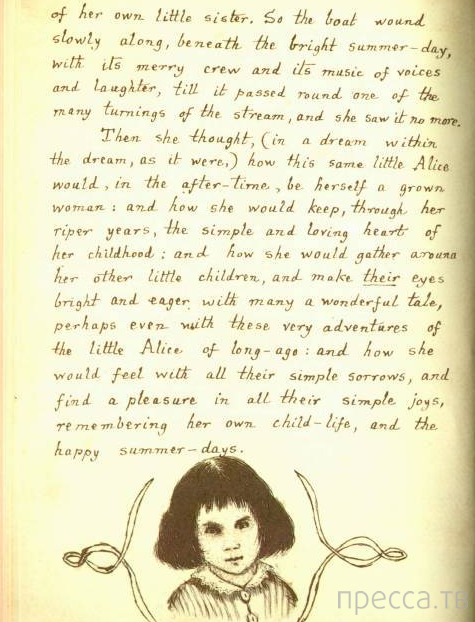 of her own little sister. So the boat wound
slowly along, beneath the bright summer-day,
with its merry crew and its music of voices
and laughter, till it passed round one of the
many turnings of the stream, and she saw it no more.
Then she thought, (in a dream within
the dream, as it were,) how this same little Alice
would, in the after-time, be herself a grown
woman: and how she would keep, through her
riper years, the simple and loving heart of
her childhood: and how she would gather around
her other little children, and make their eyes
bright and eager with many a wonderful tale,
perhaps even with these very adventures of
the little Alice of long-ago: and how she
would feel with all their simple sorrows, and
find a pleasure in all their simple joys,
remembering her own child-life, and the
happy summer-days.
пресса.тв